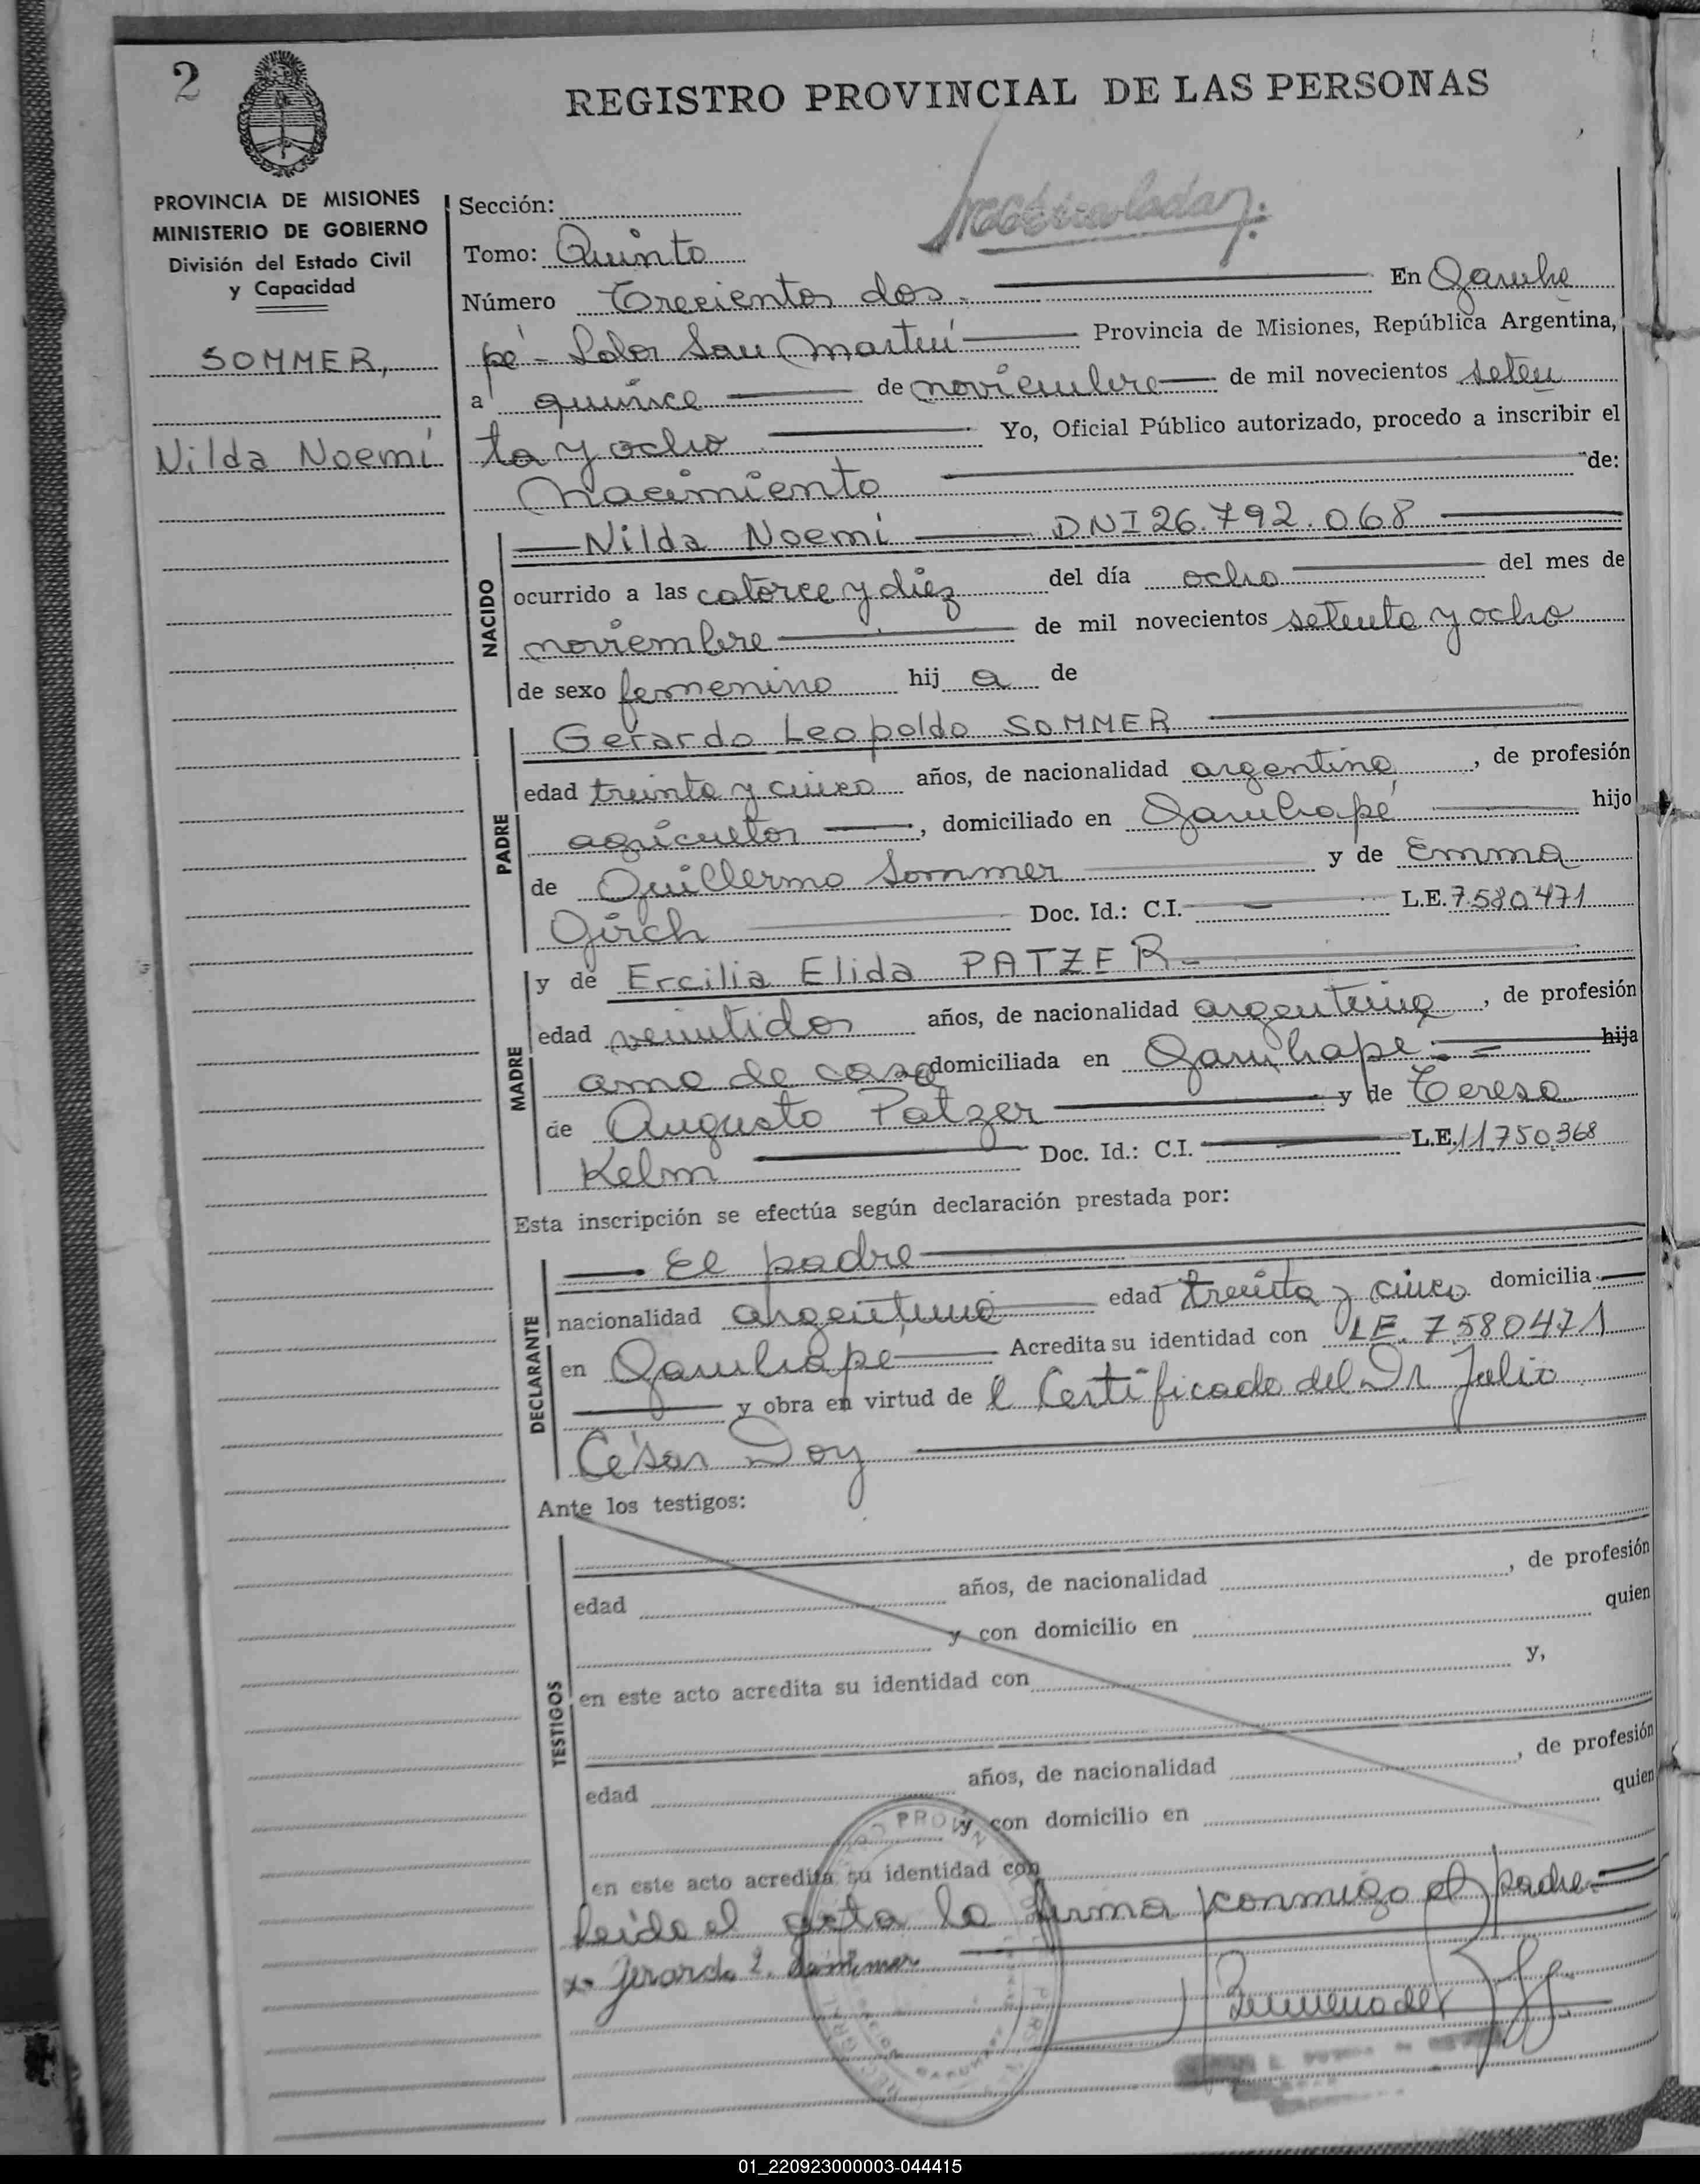 2
REGISTRO PROVINCIAL DE LAS PERSONAS
PROVINCIA DE MISIONES
MINISTERIO DE GOBIERNO
División del Estado Civil
y Capacidad
SOMMER,
Nilda Noemí
Sección:
Tomo: Quinto
Número Trecientos dos.- En Garuha
pé - Ldor San Martín Provincia de Misiones, República Argentina,
a quince de noviembre de mil novecientos seten
ta y ocho Yo, Oficial Público autorizado, procedo a inscribir el
Nacimiento de:
NACIDO
Nilda Noemí DNI 26.792.068
ocurrido a las catorce y diez del día ocho del mes de
noviembre de mil novecientos setenta y ocho
de sexo femenino hij a de
PADRE
Gerardo Leopoldo SOMMER
edad treinta y cinco años, de nacionalidad argentino, de profesión
agricultor, domiciliado en Garuhapé hijo
de Guillermo Sommer y de Emma
Girch Doc. Id.: C.I. L.E. 7580471
MADRE
y de Ercilia Elida PATZER-
edad veintidos años, de nacionalidad argentina, de profesión
ama de casa domiciliada en Garuhape.= hija
de Augusto Patzer y de Teresa
Kelm Doc. Id.: C.I. L.E. 11.750.368
Esta inscripción se efectúa según declaración prestada por:
DECLARANTE
El padre
nacionalidad argentino edad treinta y cinco domicilia
en Garuhape Acredita su identidad con L.E. 7580471
y obra en virtud de l Certificado del Dr Julio
César Doy
Ante los testigos:
TESTIGOS
edad años, de nacionalidad , de profesión
y con domicilio en quien
en este acto acredita su identidad con y,
edad años, de nacionalidad , de profesión
y con domicilio en quien
en este acto acredita su identidad con
Leida el acta la firma conmigo el padre.
x- Gerardo L. Sommer
01_220923000003-044415